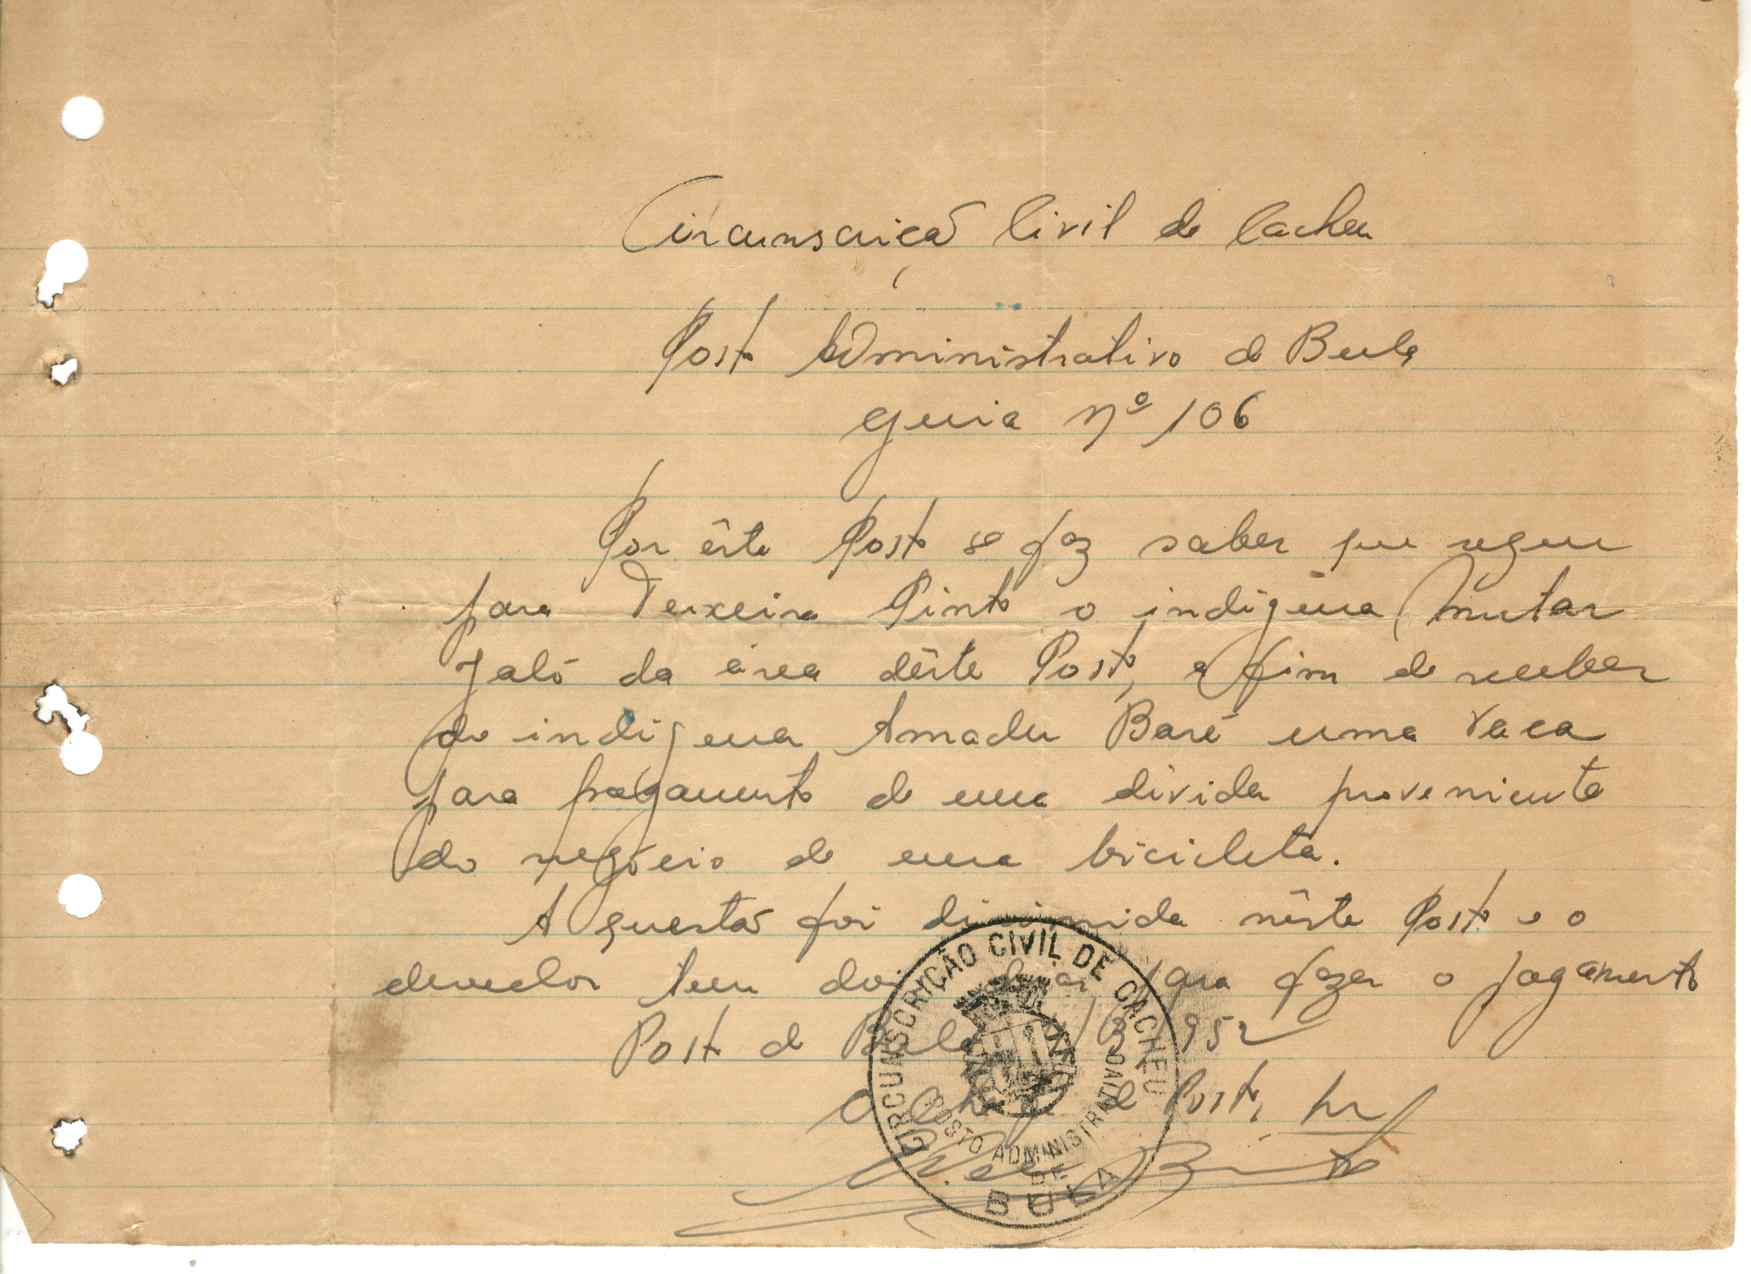 Circunscrição Civil de Cacheu
Posto Administrativo de Bula
Guia nº 106
Por êste Posto se faz saber que segue
para Teixeira Pinto o indígena Mutar
Jaló da área dêste Posto, a fim de receber
do indígena Amadu Baré uma vaca
para pagamento de uma divida proveniente
do negócio de uma bicicleta.
A questão foi dirimida nêste Posto e o
devedor tem dois para fazer o pagamento
Posto de Bula 1952
O Chefe de Posto,
CIRCUNSCRIÇÃO CIVIL DE CACHEU
POSTO ADMINISTRATIVO
DE
BULA